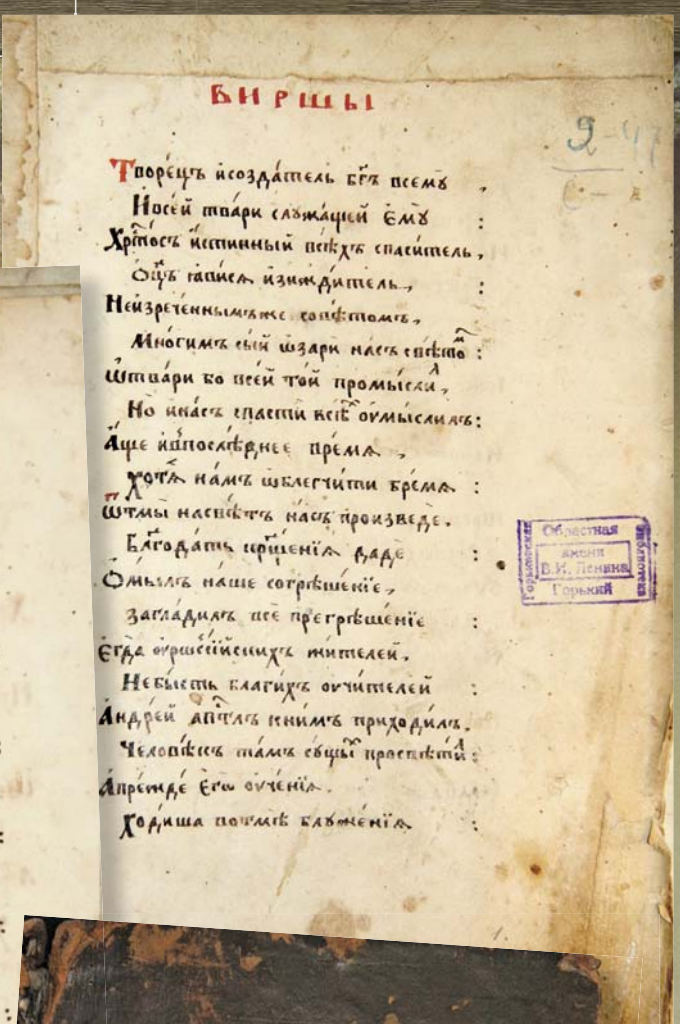 ВИРШЫ
Творе́цъ и҆созда́тель бг҃ъ всемꙋ̀ ,
И҆все́й тва́ри слꙋжа́щей є҆мꙋ̀ :
Хрⷭ҇то́съ и҆́стинный всѣ́хъ спаси́тель ,
Ѻ҆ц҃ъ ꙗ҆ви́сѧ и҆зижди́тель , :
Неизрече́ннымъже совѣ́томъ ,
Мно́гимъ сы́й ѡ҆зарѝ на́съ свѣ́томⷨ :
Ѿтва́ри бо все́й то́й промы́слилⷧ ,
Но и҆на́съ спастѝ всѣⷯ оу҆мы́слилъ :
А҆́ще и҆впослѣ́днее вре́мѧ ,
хотѧ̀ на́мъ ѡ҆блегчи́ти бре́мѧ :
Ѿтмы̀ насвѣ́тъ на́съ произведѐ .
Блг҃ода́ть крⷭ҇ще́нїѧ дадѐ :
Ѻ҆мы́лъ на́ше согрѣше́нїе ,
загла́дилъ всѐ прегрѣше́нїе :
Є҆гда̀ оу҆рѡссі́йскихъ жи́телей ,
Небы́сть благи́хъ оу҆чи́телей :
А҆ндре́й а҆пⷭ҇тлъ книⷨмъ приходи́лъ .
Человѣ́къ та́мъ сꙋ́щыⷯ просвѣти́ⷧ :
А҆пре́жде є҆гѡ̀ оу҆че́нїѧ .
Ходи́ша вотмѣ̀ блꙋже́нїѧ :
9-47
Горьковская
Областная
имени
В.И. Ленина
Горький
библиотека